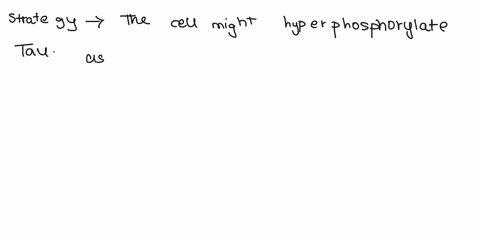 Strategy → The cell might hyperphosphorylate
Tau. as